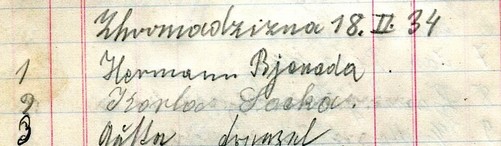 Zhromadzizna 18. II. 34
1 Hermann Bjenada
2 Karla Lacka
3 Gusta